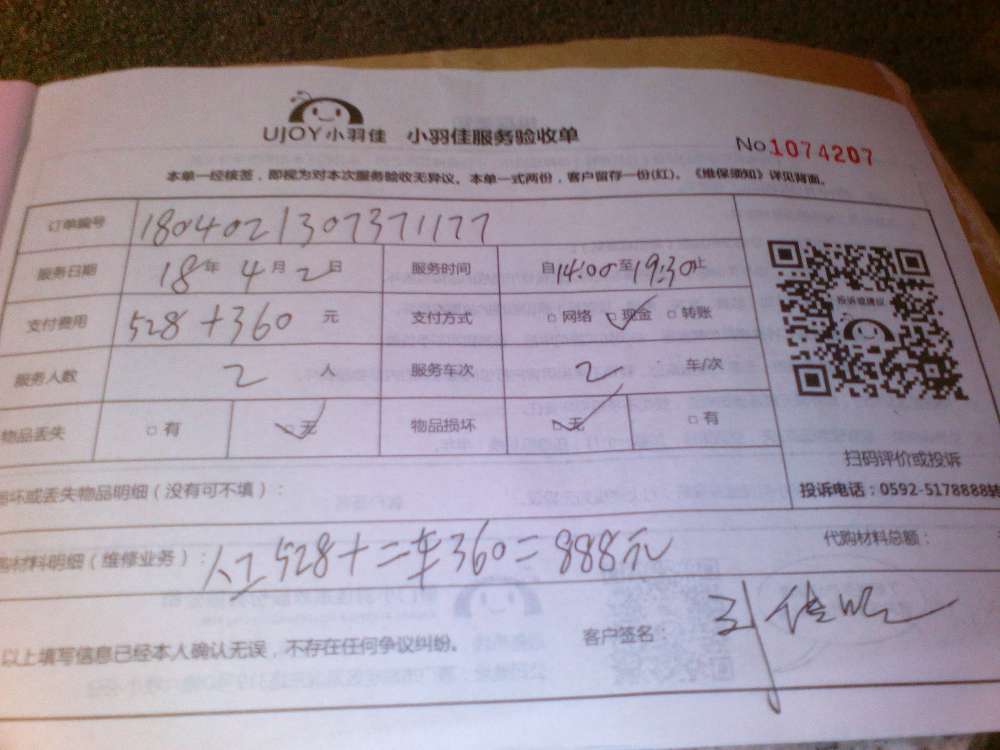 UJOY小羽佳 小羽佳服务验收单
No 1074207
本单一经核签，即视为对本次服务验收无异议。本单一式两份，客户留存一份(红)。《维保须知》详见背面。
订单编号 1804021307371177
服务日期 18年4月2日 服务时间 自14:00至19:30止
支付费用 528+360 元 支付方式 □网络 ☑现金 □转账
服务人数 2 人 服务车次 2 车/次
物品丢失 □有 ☑无 物品损坏 ☑无 □有
投诉或建议
扫码评价或投诉
投诉电话：0592-5178888转
坏或丢失物品明细（没有可不填）：
购材料明细（维修业务）： 人工528+二车360=888元
代购材料总额：
以上填写信息已经本人确认无误，不存在任何争议纠纷。 客户签名：